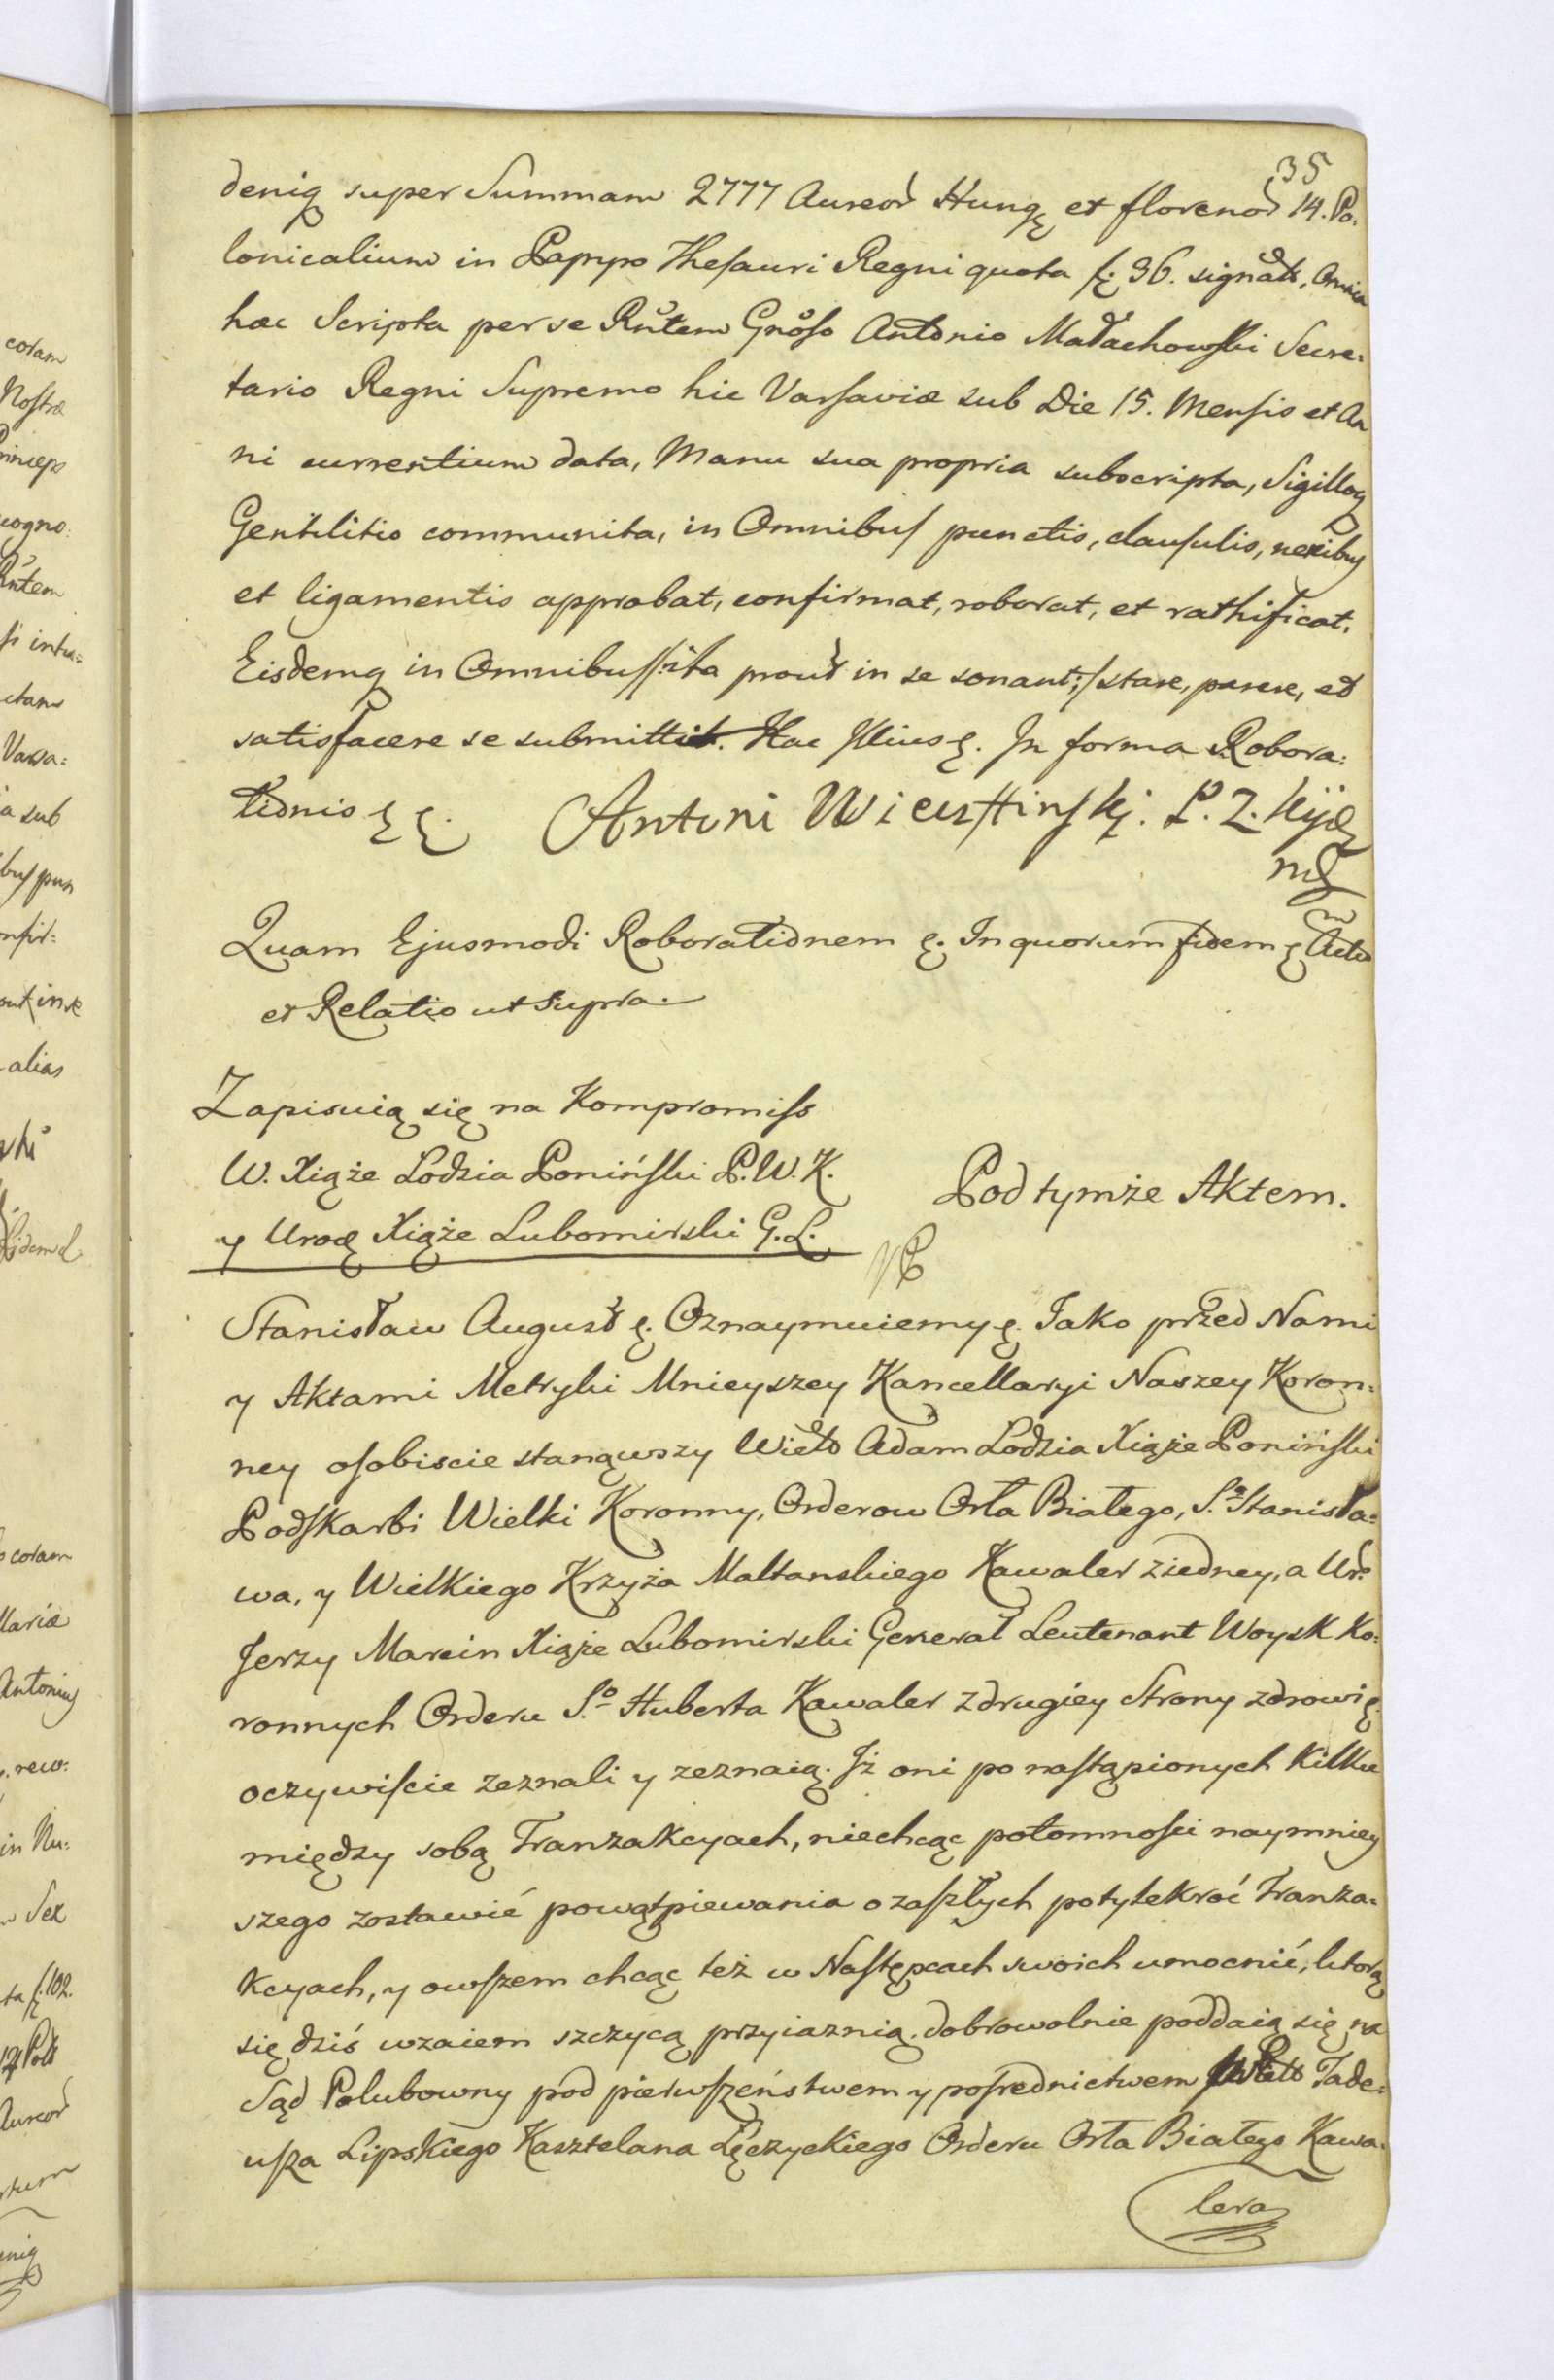 35
deniq super Summam 2777 Aureor Hung et florenor 14. Po-
lonicalium in Papyro Thesauri Regni quota f. 36. signats, Omnia
hæc Scripta per se Rntem Gnoso Antonio Małachowski Secre-
tario Regni Supremo hic Varsaviæ sub Die 15. Mensis et An
ni currentium data, Manu sua propria subscripta, Sigilloq
Gentilitio communita, in Omnibus punctis, clausulis, nexibus
et ligamentis approbat, confirmat, roborat, et rathificat.
Eisdemq in Omnibus /: ita prout in se sonant :/ stare, parere, et
satisfacere se submittit. Hac Illius &. In forma Robora-
tionis & &. Antoni Wiesztinskj. P. Z. Kijo
mp
Quam Ejusmodi Roborationem &. In quorum fidem & Actu
et Relatio ut Supra.
Zapisuią się na Kompromiss
W. Xiąże Lodzia Poniński P. W. K.
y Urod Xiąże Lubomirski G. L.
Pod tymże Aktem.
Stanisław August &. Oznaymuiemy &. Jako przed Nami
y Aktami Metryki Mnieyszey Kancellaryi Naszey Koron-
ney osobiscie stanąwszy Wielo Adam Lodzia Xiąże Poniński
Podskarbi Wielki Koronny, Orderow Orła Białego, S. Stanisła-
wa, y Wielkiego Krzyża Maltanskiego Kawaler z iedney, a Ur.
Jerzy Marcin Xiąże Lubomirski Generał Leutenant Woysk Ko-
ronnych Orderu S.o Huberta Kawaler z drugiey Strony zdrowi &.
oczywiscie zeznali y zeznaią. Jż oni po nastąpionych Kilku
między sobą Tranzakcyach, niechcąc potomnosci naymniey
szego zostawić powątpiewania o zaszłych potylekroć Tranza-
kcyach, y owszem chcąc też w Następcach swoich umocnić, ktorą
się dziś wzaiem szczycą przyiaznią. dobrowolnie poddaią się na
Sąd Polubowny pod pierwszeństwem y posrednictwem Tade-
usza Lipskiego Kasztelana Łęczyckiego Orderu Orła Białego Kawa-
lera